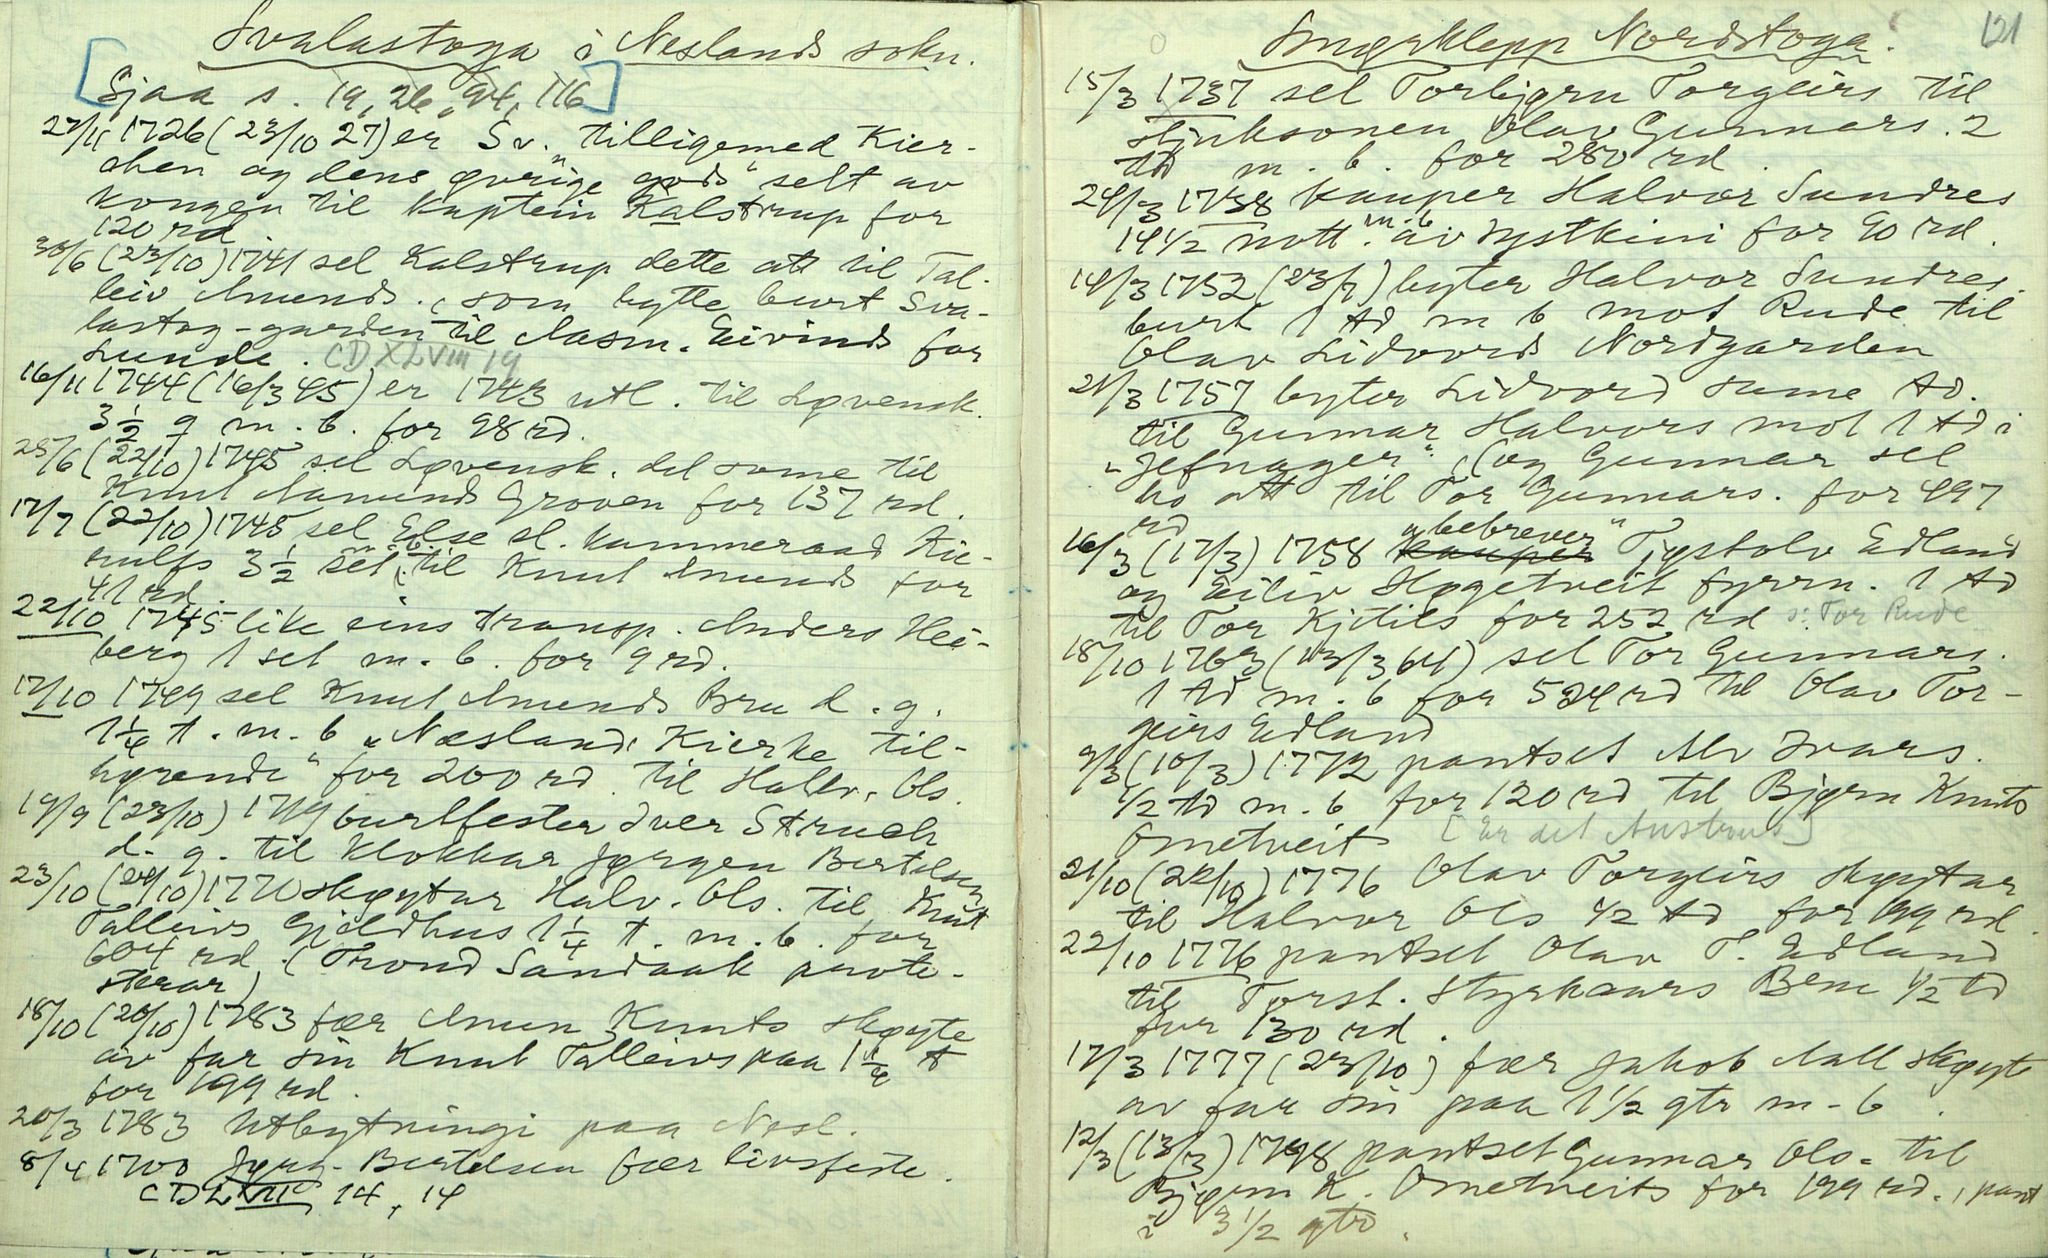 Svalastoga i Neslands sokn.
[Sjaa s. 19, 26, 94, 116]
27/11 1726 (23/10 27) er Sv. "tilligemed Kier-
chen og dens øvrige gods" selt av
kongen til Kaptein Kalstrup for
120 rd.
30/6 (23/10) 1741 sel Kalstrup dette att til Tal-
leiv Amunds., som bytte burt Sva-
lastog-garden til Aasm. Eivinds for
Lunde. CDXLVIII 19
16/11 1744 (16/3 45) er 1743 utl. til Løvensk.
3 1/2 q m. b. for 98 rd.
25/6 (22/10) 1745 sel Løvensk. det same til
Knut Aamunds Groven for 137 rd.
17/7 (22/10) 1745 sel Else sl. kammeraad Kie-
rulfs 3 1/2 set. m. b. til Knut Amunds for
41 rd.
22/10 1745 like eins transp. Anders Hei-
berg 1 set m. b. for 9 rd.
17/10 1749 sel Knut Amunds Bru d. g.
1 1/4 t. m. b "Næslands Kierke til-
hørende" for 200 rd. til Hallv. Ols.
19/9 (23/10) burtfester Iver Struch
d. g. til klokkar Jørgen Bertelsen
23/10 (24/10) 1770 skøytar Halv. Ols. til Knut
Talleivs Gjeldhus 1 1/4 t. m. b. for
604 rd. (Trond Sandaak prote-
sterar)
18/10 (20/10) 1783 fær Amun Knuts skøyte
av far sin Knut Talleivs paa 1 1/4 t
for 199 rd.
20/3 1783 Utbytningi paa Nesl.
8/4 1700 Jørg. Bertelsen fær livsfeste.
CDLVIII 14, 14
121
Smørklepp Nordstoga.
15/3 1737 sel Torbjørn Torgeirs til
stjuksonen Olav Gunnars. 2
td m. b. for 280 rd.
24/3 1738 kauper Halvor Sundres
14 1/2 nott. m b av systkini for 90 rd.
14/3 1752 (23/7) byter Halvor Sundres.
burt 1 td m b mot Rude til
Olav Lidvords Nordgarden
21/3 1757 byter Lidvord same td.
til Gunnar Halvors mot 1 td i
"Jefnager", (og Gunnar sel
ho att til Tor Gunnars. for 497
rd
16/3 (17/3) 1758 kauper "bebrever" Tjystolv Edland
og Eiliv Høgetveit fyrrn. 1 td
til Tor Kjetils for 252 rd s: Tor Rude
18/10 1763 (13/3 64) sel Tor Gunnars.
1 td m. b for 524 rd til Olav Tor-
geirs Edland
9/3 (10/3) 1772 pantset Alv Ivars.
1/2 td m. b for 120 rd til Bjørn Knuts
Ometveit [Er det Austrus]
21/10 (22/10) 1776 Olav Torgeirs skøytar
til Halvor Ols 1/2 td for 199 rd.
22/10 1776 pantset Olav T. Edland
til Torst. Styrkaars Bene 1/2 td
for 130 rd.
17/3 1777 (23/10) fær Jakob Aall skøyte
av far sin paa 1 1/2 qtr m. b.
12/3 (13/3) pantset Gunnar Ols. til
Bjørn K. Ometveits for 199 rd., pant
i 3 1/2 qtr.